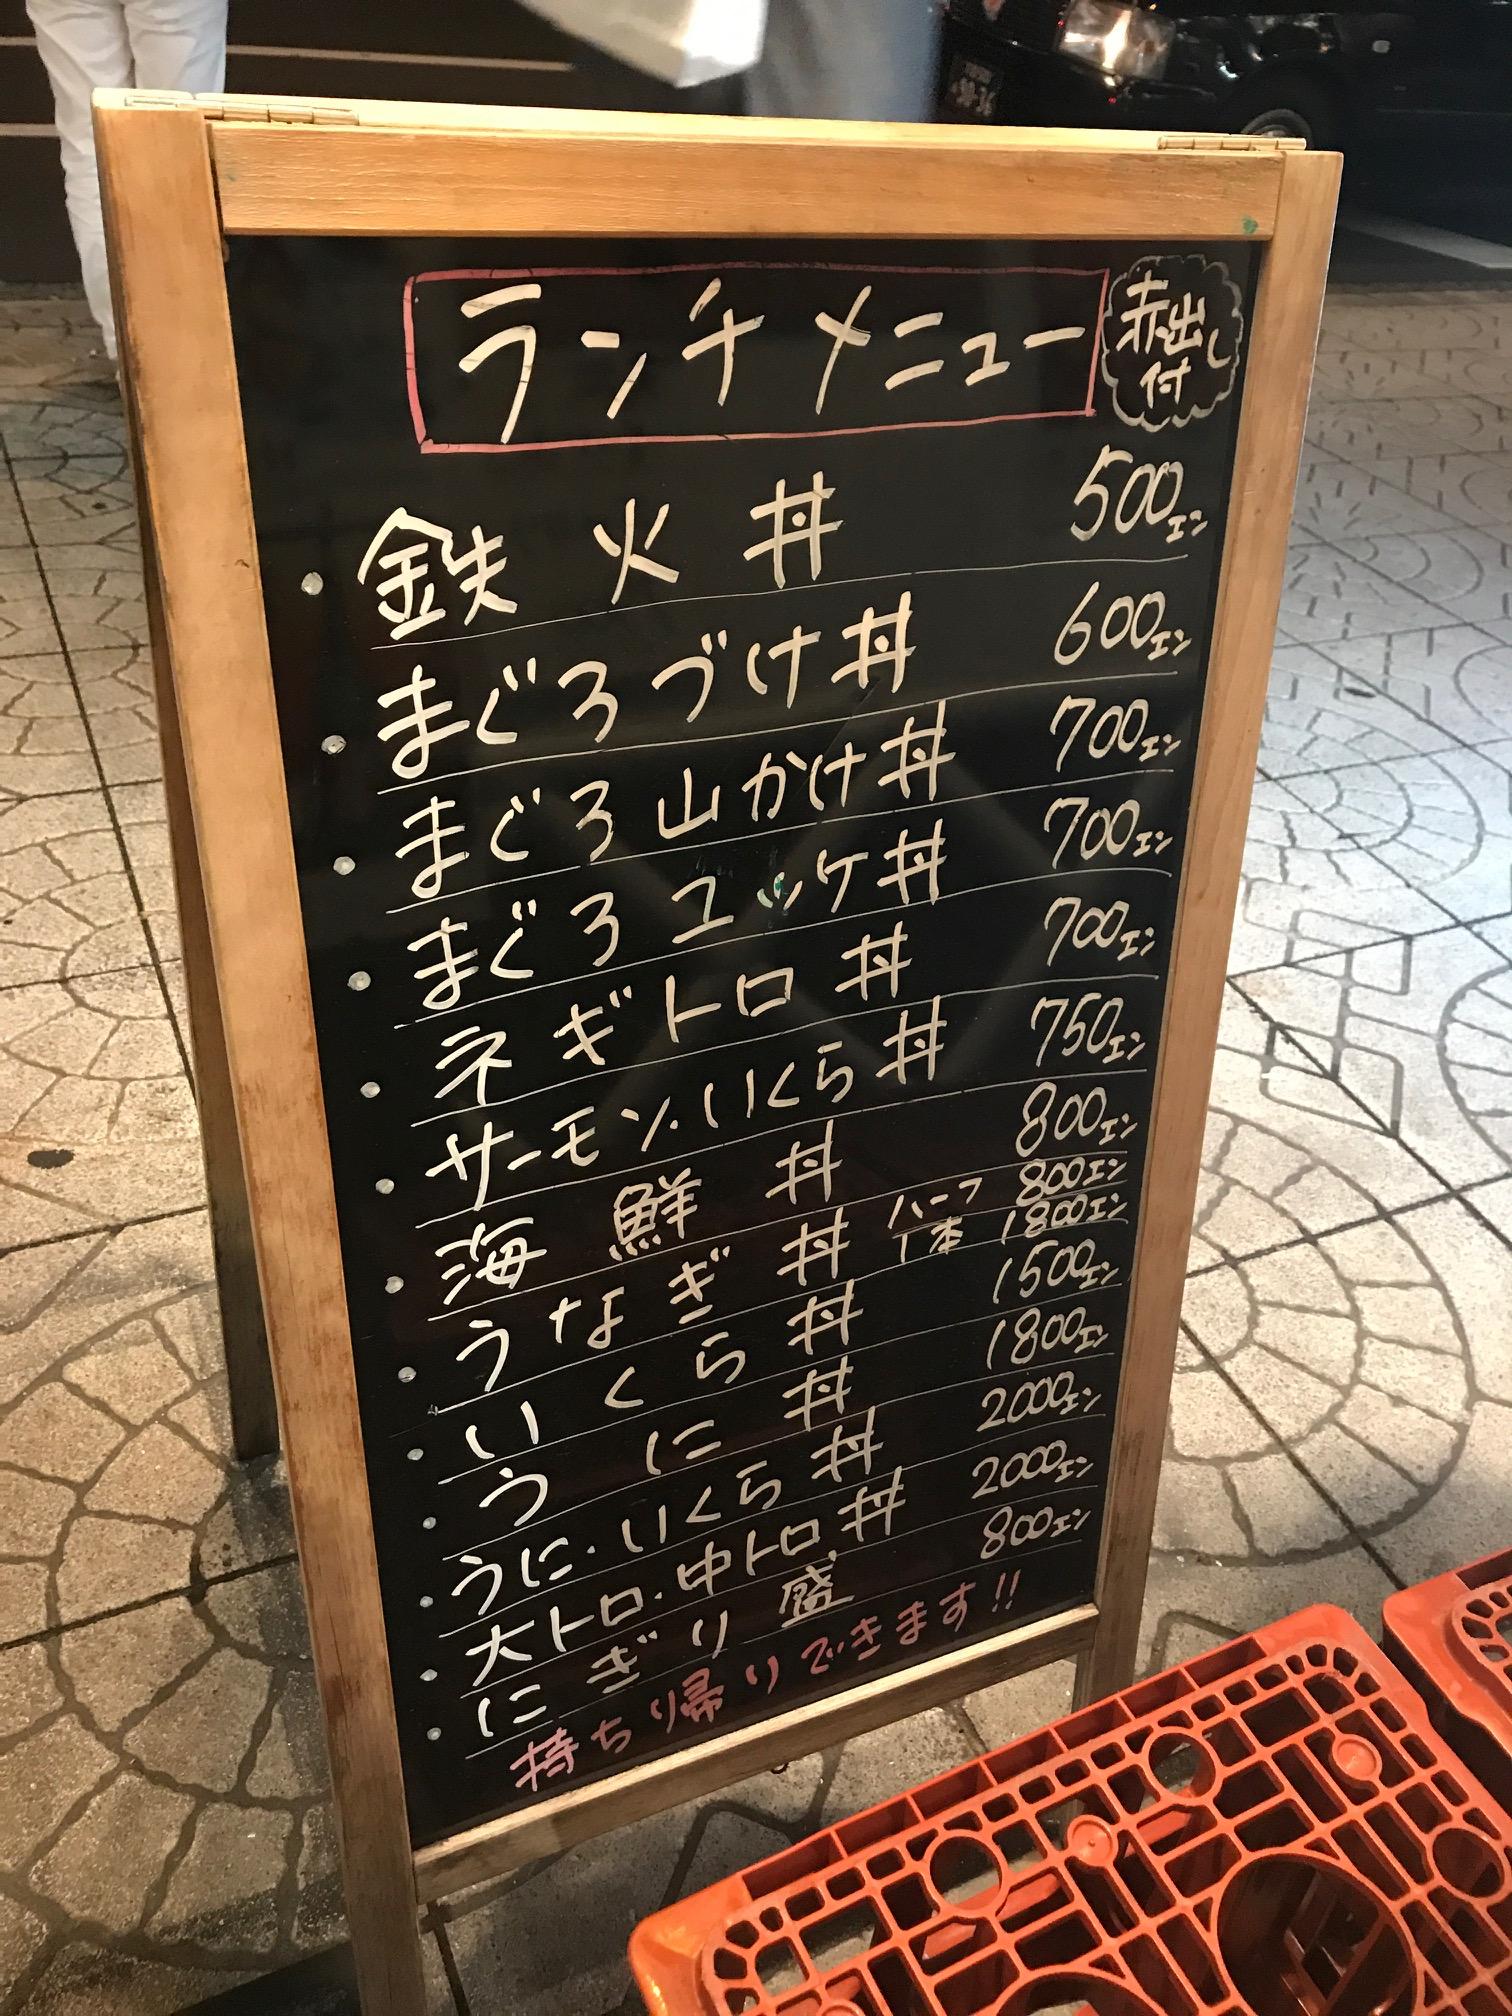 ランチメニュー
赤出し
付
・鉄火丼 500エン
・まぐろづけ丼 600エン
・まぐろ山かけ丼 700エン
・まぐろユッケ丼 700エン
・ネギトロ丼 700エン
・サーモン・いくら丼 750エン
・海鮮丼 800エン
・うなぎ丼 ハーフ 800エン
1本 1800エン
・いくら丼 1500エン
・うに丼 1800エン
・うに・いくら丼 2000エン
・大トロ・中トロ丼 2000エン
・にぎり盛 800エン
持ち帰りできます!!